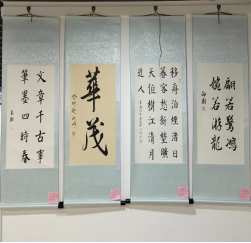 翩若驚鴻
婉若游龍
移舟泊煙渚日
暮客愁新野曠
天低樹江清月
近人
華茂
文章千古事
筆墨四時春